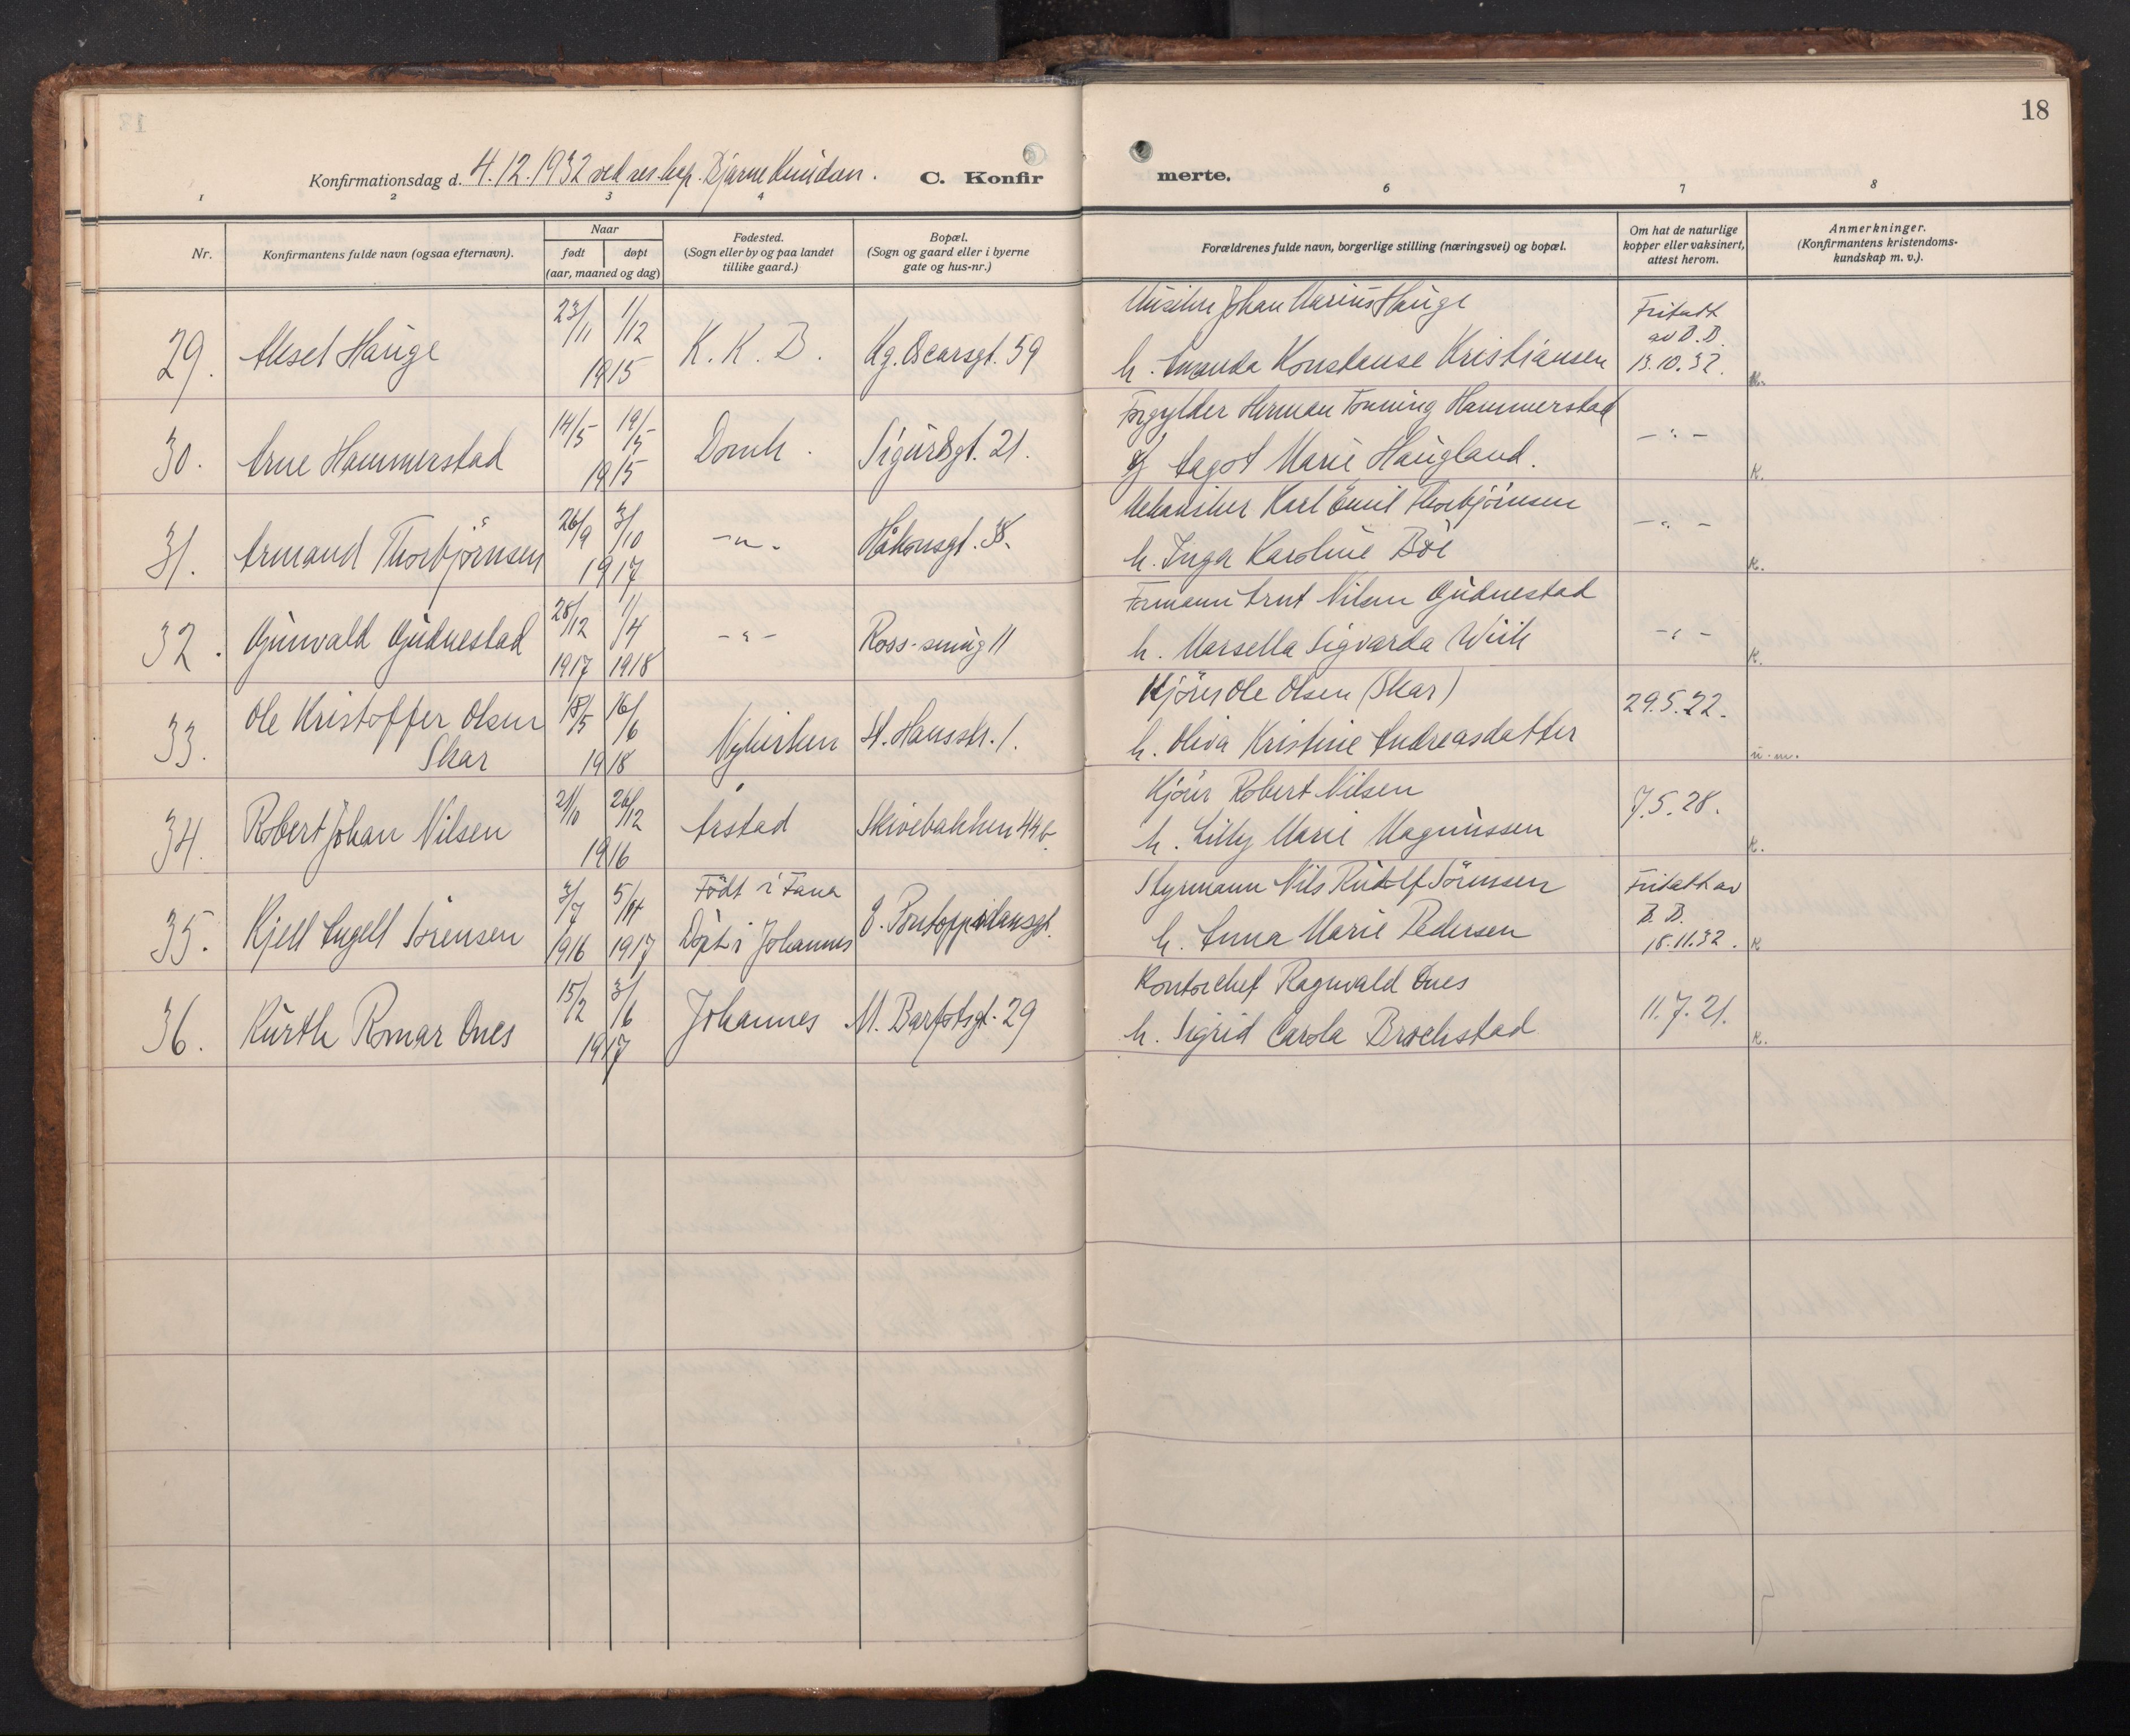 18
Konfirmationsdag d. 4.12.1932 ved res. kap. Bjarne Knudsen. C. Konfir
merte.
1 2 3 4
6 7 8
Nr.
Konfirmantens fulde navn (ogsaa efternavn).
Naar
født
døpt
(aar, maaned og dag)
Fødested.
(Sogn eller by og paa landet
tillike gaard.)
Bopæl.
(Sogn og gaard eller i byerne
gate og hus-nr.)
Forældrenes fulde navn, borgerlige stilling (næringsvei) og bopæl.
Om hat de naturlige
kopper eller vaksinert,
attest herom.
Anmerkninger.
(Konfirmantens kristendoms-
kundskap m. v.).
29. Aksel Hauge 23/11 1/12 1915 K. K. B. Kg. Oscarsgt. 59
Musiker Johan Marius Hauge
h. Amanda Konstanse Kristiansen
Fritatt
av B. D.
13.10.32.
K.
30. Arne Hammerstad 14/5 19/5 1915 Domk. Sigurdsgt. 21.
Forgylder Herman Tonning Hammerstad
Aagot Marie Haugland.
- " -
K.
31. Armand Thorbjörnsen 26/9 3/10 1917 - " - Håkonsgt. 38.
Mekaniker Karl Emil Thorbjörnsen
h. Inga Karoline Böe
- " -
K.
32. Gunvald Gudnestad 28/12 1917 1/4 1918 - " - Ross-smug 11
Formann Arnt Nilsen Gudnestad
h. Marsella Sigvarda Wiik
- " -
K.
33. Ole Kristoffer Olsen
Skar
18/5 16/6 1918 Nykirken St. Hansstr. 1.
Kjörer Ole Olsen (Skar)
h. Oliva Kristine Andreasdatter
29.5.22.
u. m.
34. Robert Johan Nilsen 21/10 26/12 1916 Årstad Skivebakken 44 b.
Kjörer Robert Nilsen
h. Lilly Marie Magnussen
7.5.28.
K.
35. Kjell Engell Sörensen 3/7 1916 5/11 1917
Födt i Fana
Döpt i Johannes
E. Pontoppidansgt.
Styrmann Nils Rudolf Sörensen
h. Anna Marie Pedersen
Fritatt av
B. D.
18.11.32.
K
36. Kurth Romar Ones 15/2 3/6 1917 Johannes M. Barfotsgt. 29
Kontorchef Ragnvald Ones
h. Sigrid Carola Brochstad
11.7.21.
K.